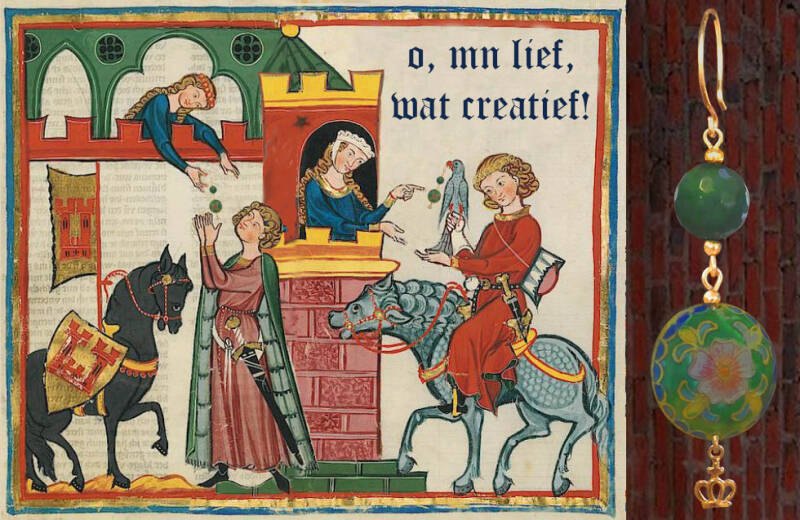 o, mn lief,
wat creatief!